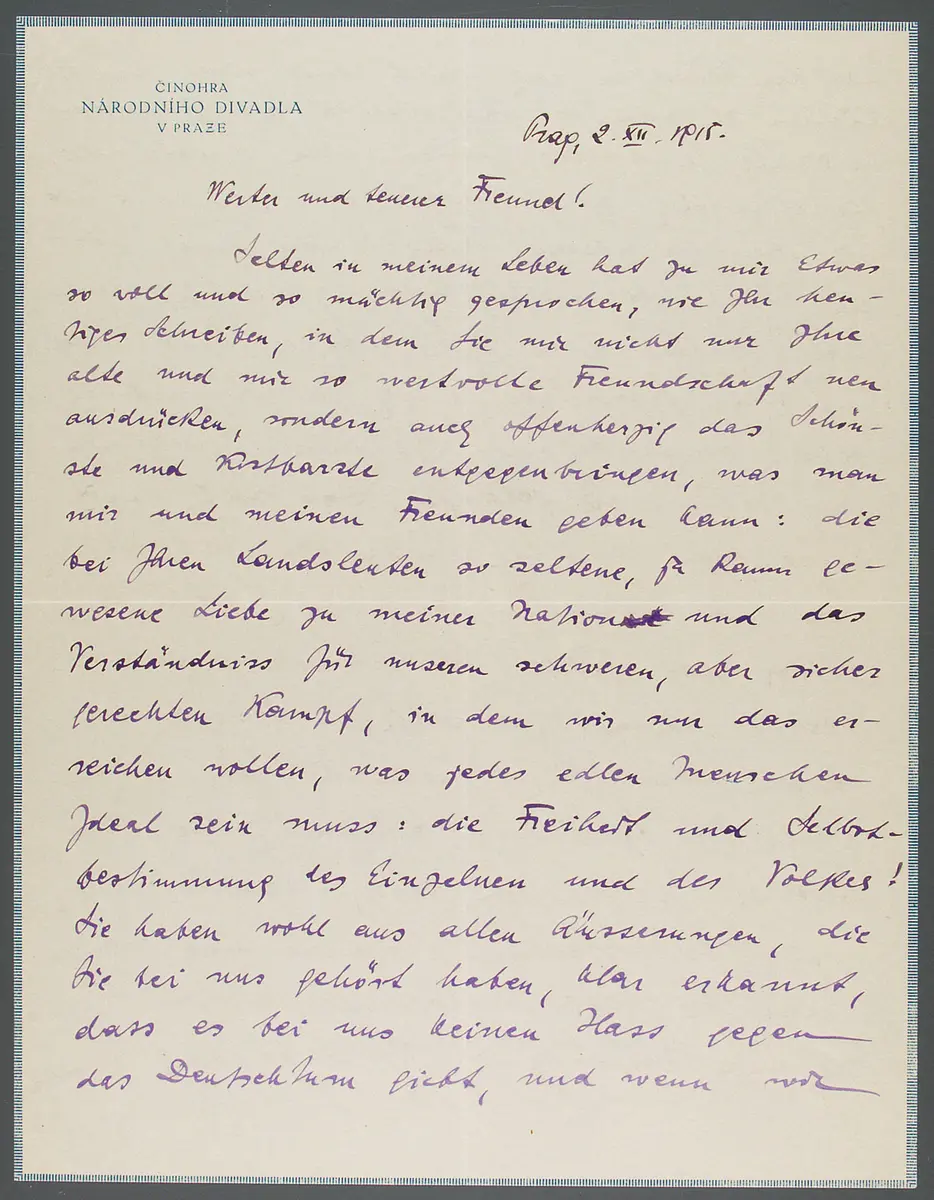 ČINOHRA
NÁRODNÍHO DIVADLA
V PRAZE
Prag, 2. XII. 1915.
Werter und teuerer Freund!
Selten in meinem Leben hat zu mir Etwas
so voll und so mächtig gesprochen, wie Ihr heu-
tiges Schreiben, in dem Sie mir nicht nur Ihre
alte und mir so wertvolle Freundschaft neu
ausdrücken, sondern auch offenherzig das Schön-
ste und Kostbarste entgegenbringen, was man
mir und meinen Freunden geben kann: die
bei Ihren Landsleuten so seltene, ja kaum ge-
wesene Liebe zu meiner Nation und das
Verständniss für unseren schweren, aber sicher
gerechten Kampf, in dem wir nur das er-
reichen wollen, was jedes edlen Menschen
Ideal sein muss: die Freiheit und Selbst-
bestimmung des Einzelnen und des Volkes!
Sie haben wohl aus allen Äusserungen, die
Sie bei uns gehört haben, klar erkannt,
dass es bei uns keinen Hass gegen
das Deutschtum giebt, und wenn wir